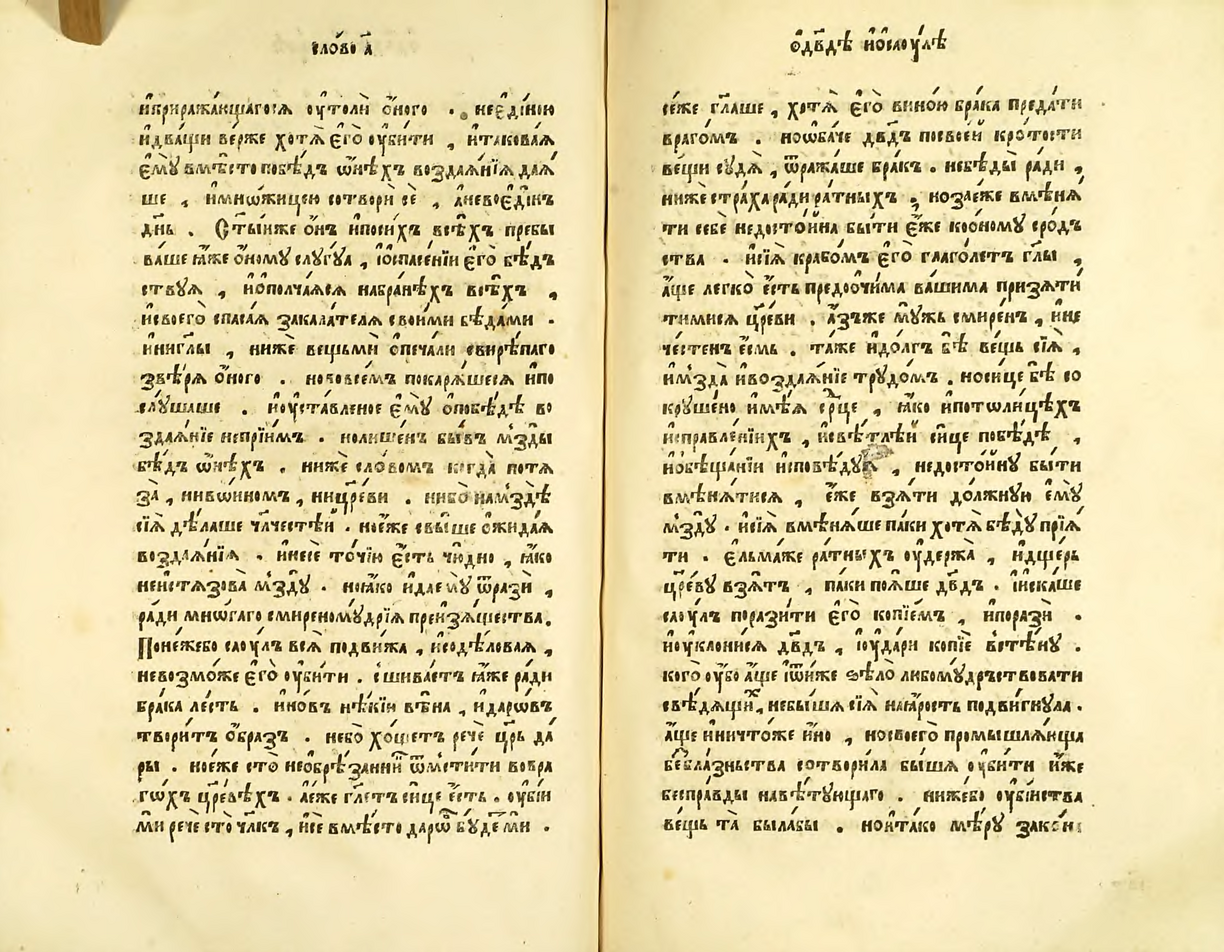 сло́во а҃
ѝприража́ющагося ᲂу҆толѝ ѻ҆́ного . неє҆ди́ною
и҆два́щи ве́рже хотѧ̀ є҆го̀ ᲂу҆би́ти , и҆такова́ѧ
є҆мꙋ̀ вмѣ́сто побѣ́дъ ѡ҆нѣ́хъ воздаѧ́нїѧ даѧ́
ше , и҆мнѡ́жицею сотвори̇̀ сѐ , а҆невоє҆ди́нъ
дн҃ь . Ст҃ы́иже ѻ҆́нъ и҆поси́хъ всѣ́хъ пребы
ва́ше ꙗ҆́же ѻ҆́номꙋ слꙋгꙋ́ѧ , и҆ѻ҆спасе́нїи є҆го̀ бѣ́д
ствꙋѧ , и҆ѻ҆полча́ѧсѧ набра́нѣхъ всѣ́хъ ,
и҆своего̀ спаса́ѧ закала́телѧ свои́ми бѣда́ми .
и҆ниглы̀ , нижѐ вещьмѝ ѻ҆печа́ли свирѣ́паго
звѣ́рѧ ѻ҆́ного . новсѣ́мъ покарѧ́шесѧ и҆по
слꙋ́шаше . и҆ᲂу҆ста́вленое є҆мꙋ̀ ѻ҆побѣ́дѣ во
здаѧ́нїе непрїи́мъ . нолише́нъ бы́въ мзды̀
бѣ́дъ ѡ҆нѣ́хъ . нижѐ сло́вомъ когда̀ потѧ
за̀ , нивѡ́иномъ , ницр҃е́ви . нибо̀ намздѣ̀
сїѧ̀ дѣ́лаше чл҃честѣ́й . ноє҆́же свы́ше ѻ҆жида́ѧ
воздаѧ́нїѧ . и҆несѐ то́чїю є҆́сть чю́дно , ꙗ҆́ко
неи҆стѧзова̀ мздꙋ̀ . ноꙗ҆́ко и҆дае́мꙋ ѿразѝ ,
ра́ди мнѡ́гаго смиреномꙋ́дрїѧ преизѧ́щества .
Поне́жебо саꙋ́лъ всѧ̀ подви́жа , и҆содѣ́ловаѧ ,
невозмо́же є҆го̀ ᲂу҆би́ти . сшива́етъ ꙗ҆́же ра́ди
бра́ка ле́сть . и҆но́въ нѣ́кїи вѣ́на , и҆дарѡ́въ
твори́тъ ѻ҆́бразъ . небо̀ хо́щетъ речѐ цр҃ь да
ры̀ . ноє҆́же сто̀ неѻ҆брѣ́заний ѿмсти́ти вовра
гѡ́хъ цр҃е́вѣхъ . а҆є҆́же гл҃етъ си́це є҆́сть . ᲂу҆бїи́
ми речѐ сто̀ чл҃къ , и҆сѐ вмѣ́сто дарѡ̑ бꙋ́де ми .
ѻ҆дв҃дѣ и҆ѻ҆саꙋ́лѣ
се́же гл҃аше , хотѧ̀ є҆го̀ вино́ю бра́ка преда́ти
врагѡ́мъ . ноѡ҆ба́че дв҃дъ посвое́й кро́тости
ве́щи сꙋдѧ̀ , ѿража́ше бра́къ . небѣды̀ ра́ди ,
нижѐ стра́ха ра́ди ра́тныхъ , нозає҆́же вмѣнѧ́
ти себѐ недосто́йна бы́ти є҆́же ко ѻ҆́номꙋ сро́д
ства . и҆сїѧ̀ крабо́мъ є҆го̀ глаго́летъ гл҃ы ,
а҆́ще легко̀ є҆́сть предочи́ма ва́шима призѧ́ти
тимисѧ цр҃е́ви . а҆́зъже мꙋ́жь смире́нъ , и҆не
че́стенъ є҆́смь . та́же и҆до́лгъ бѣ̀ ве́щь сїѧ̀ ,
и҆мзда̀ и҆воздаѧ́нїе трꙋдо́мъ . носи́це бѣ̀ со
крꙋше́но и҆мѣ́ѧ ср҃це , ꙗ҆́ко и҆потѡли́цѣхъ
и҆справле́нїихъ , и҆свѣ́тлѣй си́це побѣ́дѣ ,
и҆ѻ҆бѣща́нїи и҆сповѣ́дꙋѧ , недосто́йнꙋ бы́ти
вмѣнѧ́тисѧ , є҆́же взѧ́ти до́лжнꙋю є҆мꙋ̀
мздꙋ̀ . и҆сїѧ̀ вмѣнѧ́ше па́ки хотѧ̀ бѣдꙋ̀ прїѧ́
ти . є҆льма́же ра́тныхъ ᲂу҆держа̀ , и҆дще́рь
цр҃е́вꙋ взѧ́тъ , па́ки поѧ́ше дв҃дъ . и҆и҆ска́ше
саꙋ́лъ порази́ти є҆го̀ копїе́мъ , и҆поразѝ .
и҆ᲂу҆клони́сѧ дв҃дъ , и҆ᲂу҆да́ри копїѐ встѣ́нꙋ .
кого̀ ᲂу҆́бо а҆́ще и҆ѿни́же ѕѣло̀ любомꙋ́дрьствовати
свѣ́дѧщихъ , небы́шѧ сїѧ̀ наꙗ҆́рость подви́гнꙋла .
а҆́ще и҆ничто́же и҆́но , носвоего̀ промышлѧ́юща
беблазньства сотвори́ла бы́шѧ ᲂу҆би́ти и҆́же
беспра́вды навѣ́тꙋющаго . ниже́бо ᲂу҆бі́йства
ве́щь та̀ была́бы . нои҆та́ко мѣ́рꙋ зако́на